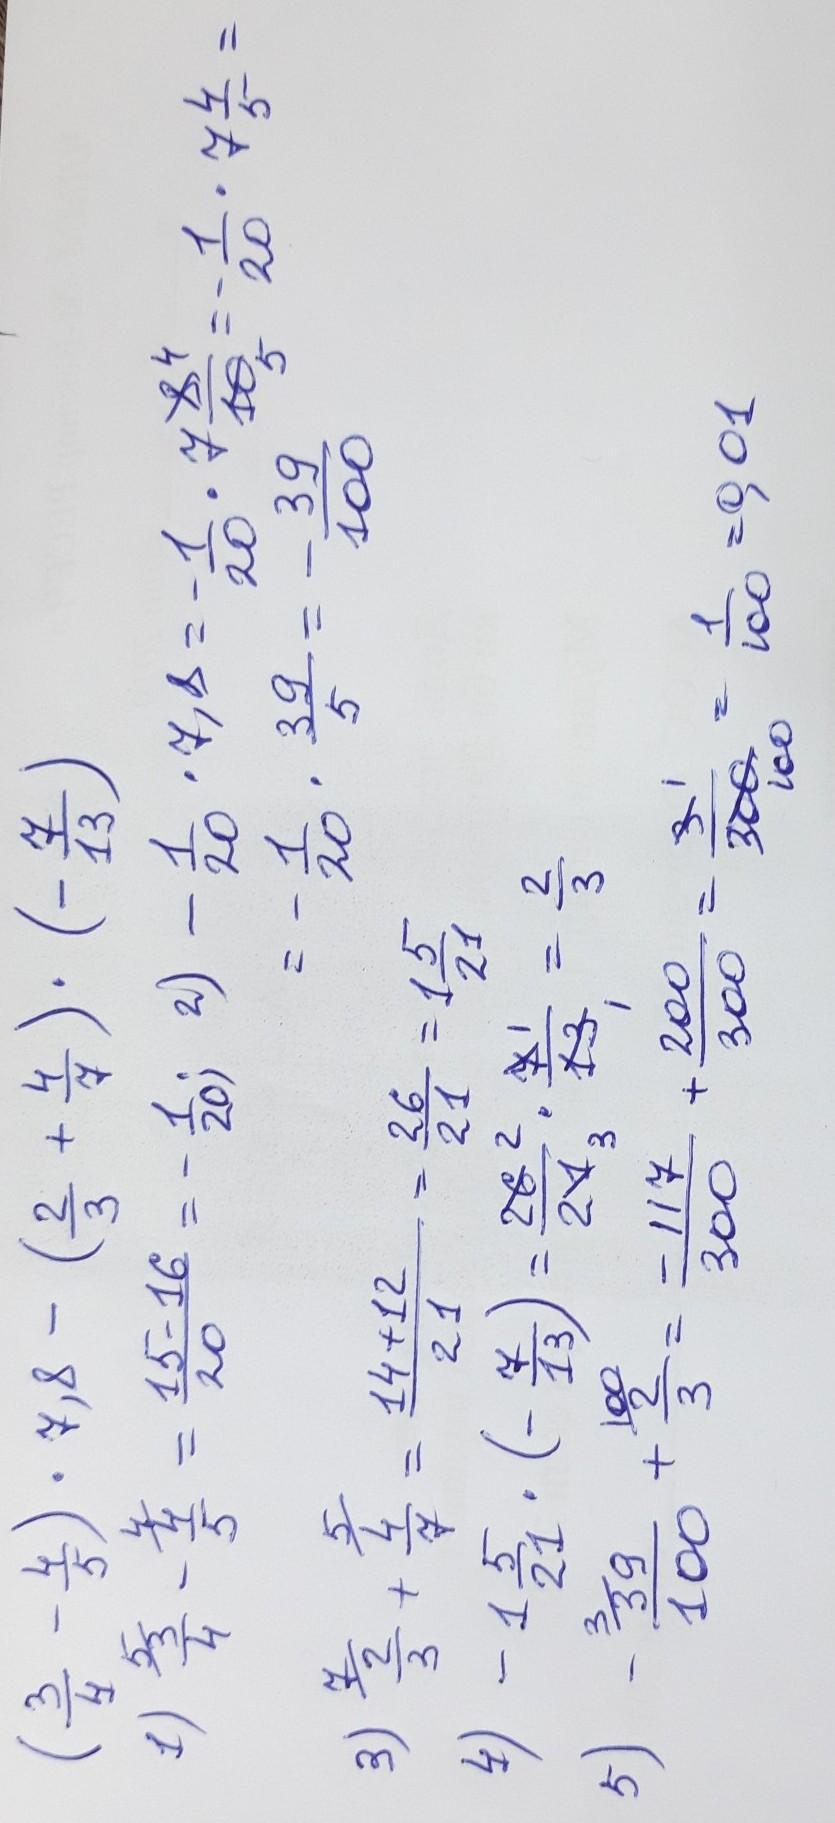 (3/4 - 4/5) · 7,8 - (2/3 + 4/7) · (- 7/13)
1) 5 3/4 - 4 4/5 = 15-16/20 = - 1/20; 2) - 1/20 · 7,8 = - 1/20 · 7 8 4/10 5 = - 1/20 · 7 4/5 =
= - 1/20 · 39/5 = - 39/100
3) 7 2/3 + 5 4/7 = 14+12/21 = 26/21 = 1 5/21
4) - 1 5/21 · (- 7/13) = 26 2/21 3 · 7 1/13 1 = 2/3
5) - 3 39/100 + 100 2/3 = -117/300 + 200/300 = 3 1/300 100 = 1/100 = 0,01